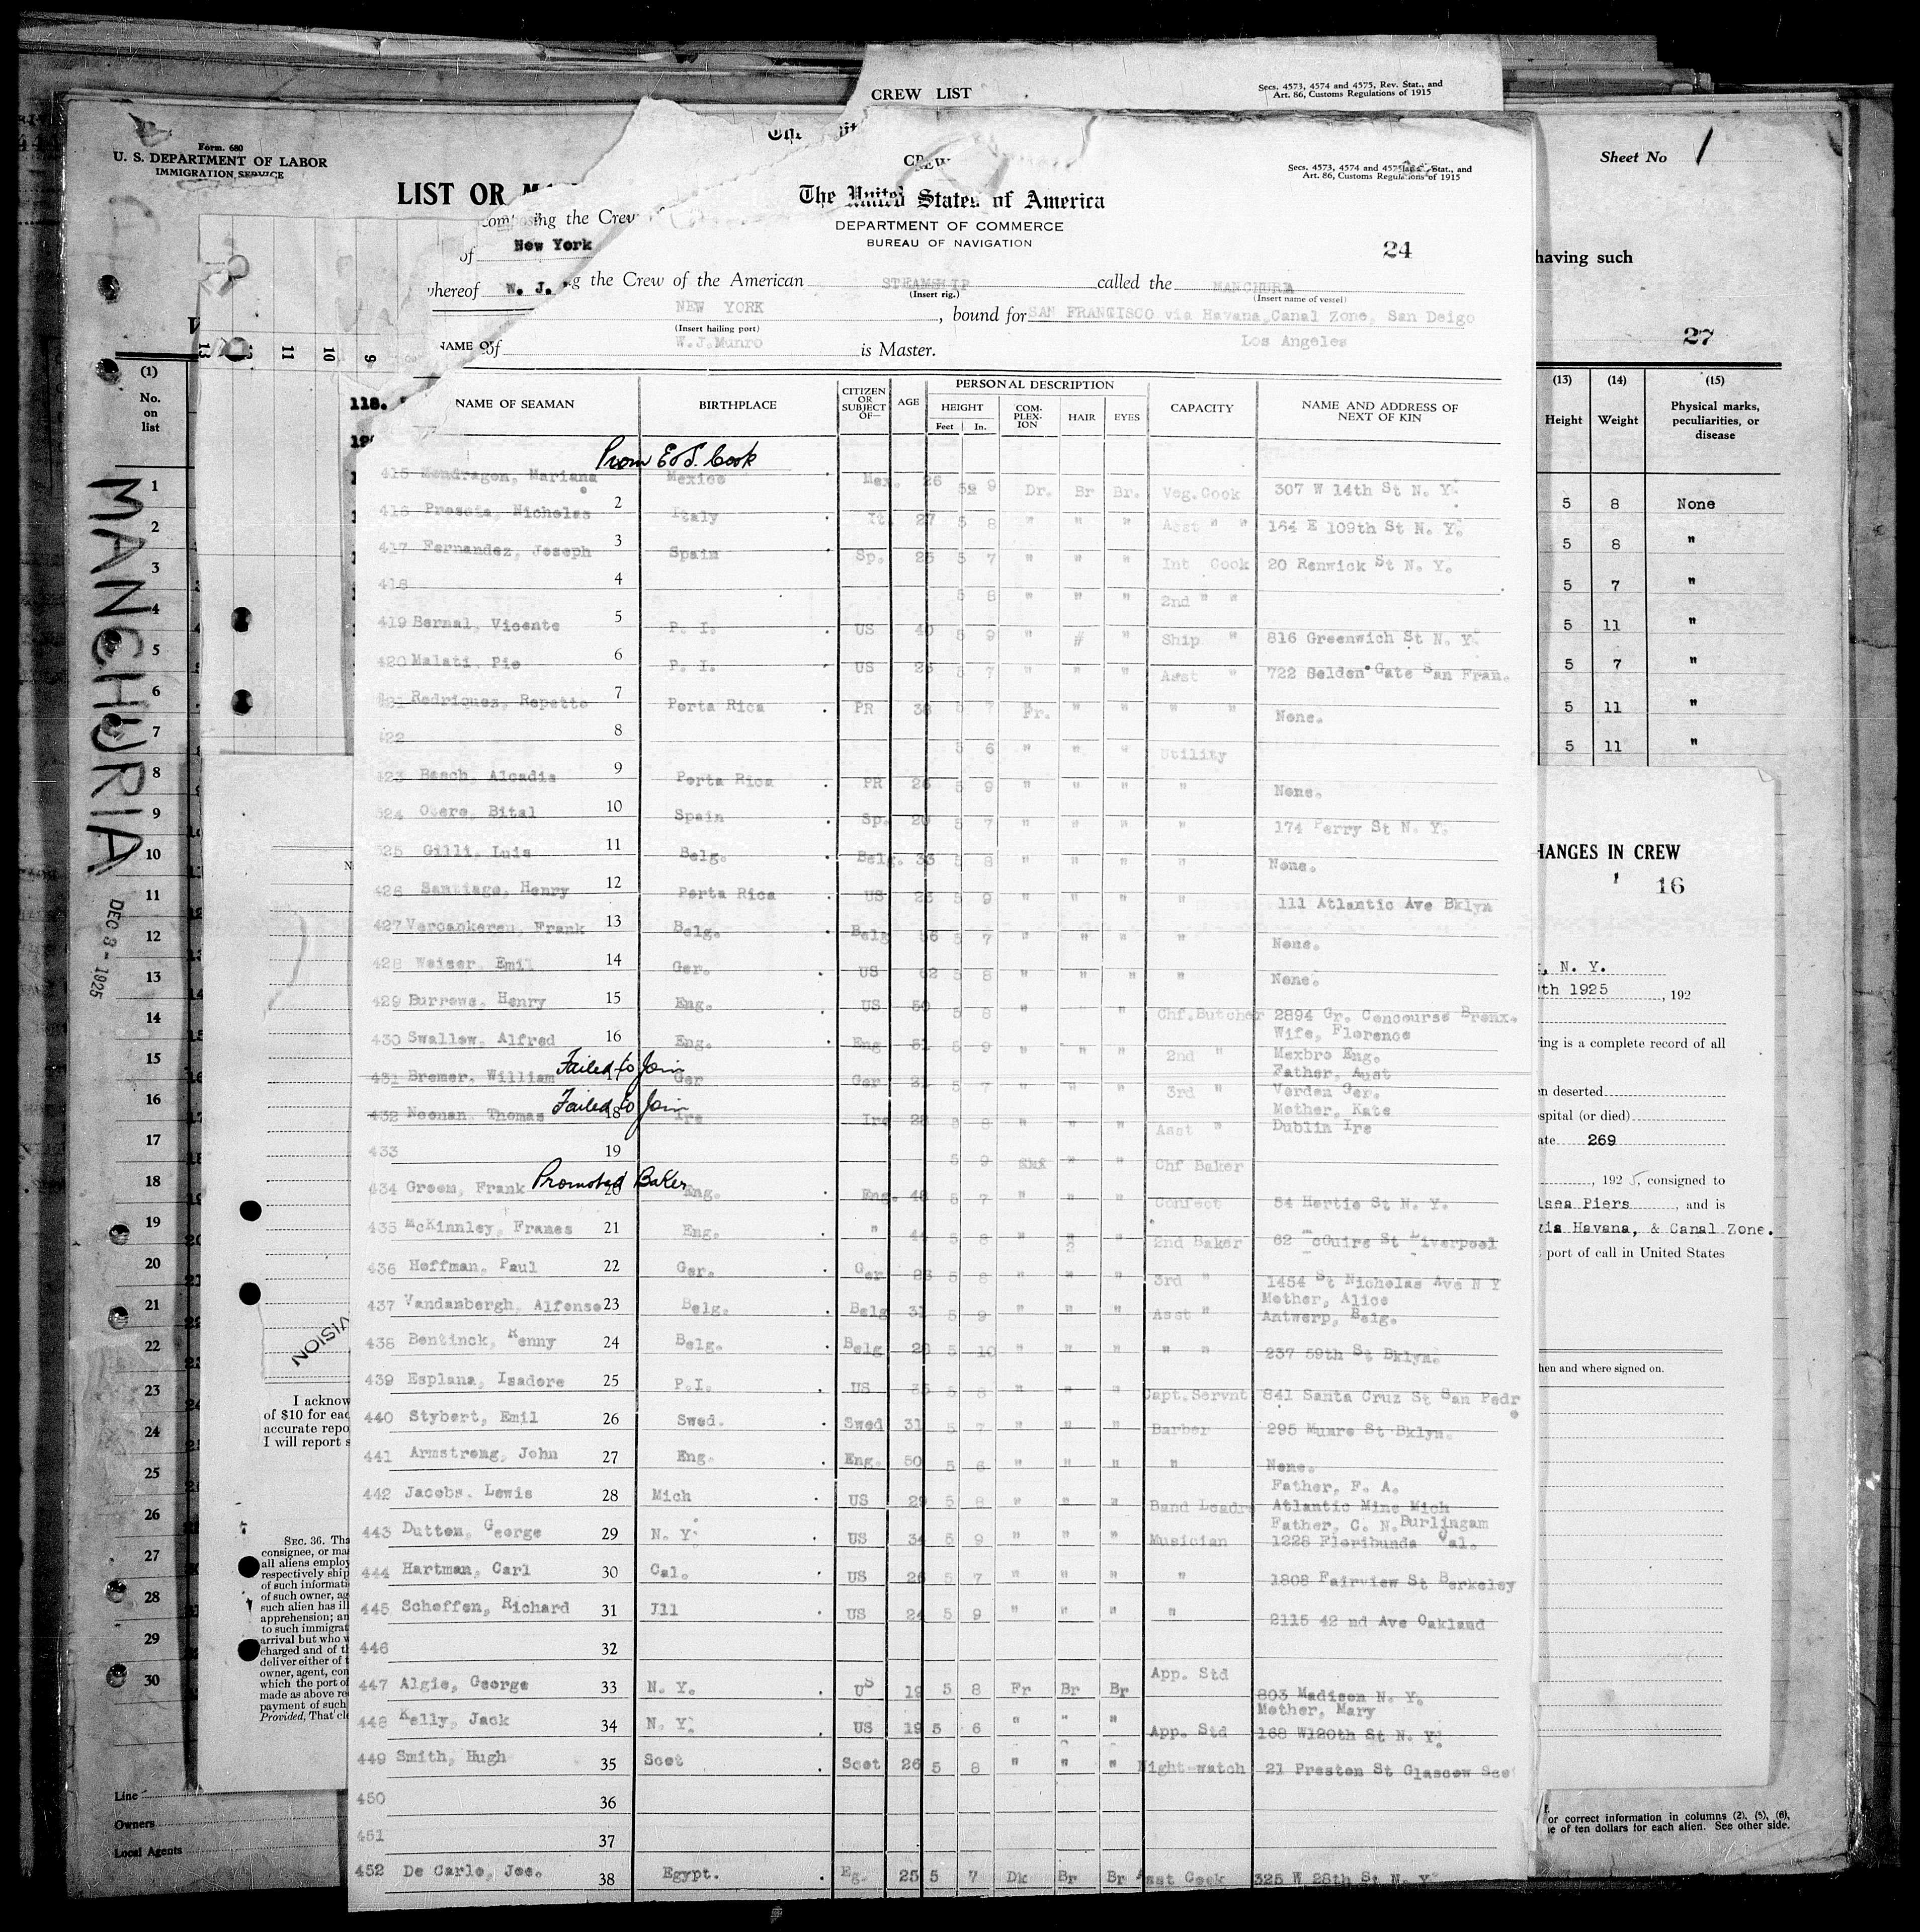 CREW LIST
Secs. 4573, 4574 and 4575, Rev. Stat., and
Art. 86, Customs Regulations of 1915
Form. 680
U. S. DEPARTMENT OF LABOR
IMMIGRATION SERVICE
Sheet No 1
LIST OR
The United States of America
DEPARTMENT OF COMMERCE
BUREAU OF NAVIGATION
Secs. 4573, 4574 and Stat., and
Art. 86, Customs Regulations of 1915
24
the Crew
of New York
W. J.
the Crew of the American STEAMSHIP called the MANCHURA
(Insert rig.) (Insert name of vessel)
NEW YORK, bound for SAN FRANCISCO via Havana, Canal Zone, San Deigo
(Insert hailing port)
of W.J.Munro is Master. Los Angeles
having such
27
118.
NAME OF SEAMAN BIRTHPLACE CITIZEN OR SUBJECT OF— AGE PERSONAL DESCRIPTION CAPACITY NAME AND ADDRESS OF NEXT OF KIN
HEIGHT COM-PLEX-ION HAIR EYES
Feet In.
From E. S. Cook
415 Mondragon, Mariano Mexico Mex. 26 9 Dr. Br Br. Veg.Cook 307 W 14th St N. Y.
416 Nicholas 2 Italy It. 27 5 8 " " " Asst " " 164 E 109th St N. Y.
417 Fernandez, Joseph 3 Spain Sp. 5 7 " " " Int Cook 20 Renwick St N. Y.
418 4 5 8 " " " 2nd " "
419 Bernal, Vicente 5 P. I. US 40 5 9 " # " Ship " 816 Greenwich St N. Y.
420 Malati, Pio 6 P. I. US 5 7 " " " Asst " 722 Golden Gate San Fran.
421 Rodriquez, Repetto 7 Porta Rica PR 5 7 Fr. " " " " None.
422 8 5 6 " " " Utility
423 Basch, Alcadia 9 Porta Rica PR 26 5 9 " " " " None.
424 Otero, Bital 10 Spain Sp. 5 7 " " " " 174 Perry St N. Y.
425 Gilli, Luis 11 Belg. Belg. 33 5 8 " " " " None.
426 Santiago, Henry 12 Porta Rica US 5 9 " " " " 111 Atlantic Ave Bklyn
427 Frank 13 Belg. Belg 5 7 " " " " None.
428 Weiser, Emil 14 Ger. US 5 8 " " " " None.
429 Burrows, Henry 15 Eng. US 50 5 8 " " " Chf.Butcher 2894 Gr. Concourse Bronx.
430 Swallow, Alfred 16 Eng. Eng 51 5 9 " " " 2nd " Wife, Florence
Mexbro Eng.
431 Bremer, William Failed to Join 17 Ger Ger 5 7 " " " 3rd " Father, Aust
Verden Ger.
432 Noonan, Thomas Failed to Join 18 Ire Ire 5 8 " " " Asst " Mother, Kate
Dublin Ire
433 19 5 9 " " Chf Baker
434 Groom, Frank Promoted Baker 20 Eng. Eng. 48 5 7 " " " Confect 54 Hertie St N. Y.
435 McKinnley, Frames 21 Eng. " 44 5 8 " " " 2nd Baker 62 McGuire St Liverpool
436 Hoffman, Paul 22 Ger. Ger 5 8 " " " 3rd " 1454 St Nicholas Ave N Y
437 Vandanbergh, Alfonse 23 Belg. Belg 31 5 9 " " " Asst " Mother, Alice
Antwerp, Belg.
438 Bentinck, Renny 24 Belg. Belg 5 10 " " " " " 237 59th St Bklyn.
439 Esplana, Isadore 25 P.I. US 5 8 " " " Capt.Servnt 841 Santa Cruz St San Pedro
440 Stybert, Emil 26 Swed. Swed 31 5 7 " " " Barber 295 Munro St Bklyn.
441 Armstrong, John 27 Eng. Eng. 50 5 6 " " " " None.
442 Jacobs, Lewis 28 Mich US 29 5 8 " " " Band Leadr Father, F. A.
Atlantic Mine Mich
443 Dutton, George 29 N. Y. US 34 5 9 " " " Musician Father, C. N. Burlingam
1228 Floribunda Cal.
444 Hartman, Carl 30 Cal. US 26 5 7 " " " " 1808 Fairview St Berkeley
445 Scheffen, Richard 31 Ill US 24 5 9 " " " " 2115 42 nd Ave Oakland
446 32 App. Std
447 Algie, George 33 N. Y. US 19 5 8 Fr Br Br 803 Madison N. Y.
448 Kelly, Jack 34 N. Y. US 19 5 6 " " " App. Std Mother, Mary
168 W120th St N. Y.
449 Smith, Hugh 35 Scot Scot 26 5 8 " " " Night watch 21 Preston St Glascow Sco
450 36
451 37
452 De Carlo, Joe. 38 Egypt. Eg. 25 5 7 Dk Br Br Asst Cook 325 W 28th St N. Y.
MANCHURIA
DEC 8 - 1925
(1)
No. on list
1
2
3
4
5
6
7
8
9
10
11
12
13
14
15
16
17
18
19
20
21
22
23
24
25
26
27
28
29
30
Line
Owners
Local Agents
13 11 10 9
VISION
I acknow
of $10 for eac
accurate repo
I will report s
SEC. 36. Tha
consignee, or ma
all aliens employ
respectively ship
of such informati
of such owner, ag
such alien has ill
apprehension; an
to such immigrat
arrival but who w
charged and of th
deliver either of t
owner, agent, con
which the port of
made as above re
payment of such
Provided, That cle
(13) (14) (15)
Height Weight Physical marks, peculiarities, or disease
5 8 None
5 8 "
5 7 "
5 11 "
5 7 "
5 11 "
5 11 "
HANGES IN CREW
16
, N. Y.
th 1925, 192
ring is a complete record of all
en deserted
spital (or died)
ate 269
, 192 5, consigned to
lsea Piers, and is
via Havana, & Canal Zone.
port of call in United States
hen and where signed on.
or correct information in columns (2), (5), (6),
e of ten dollars for each alien. See other side.